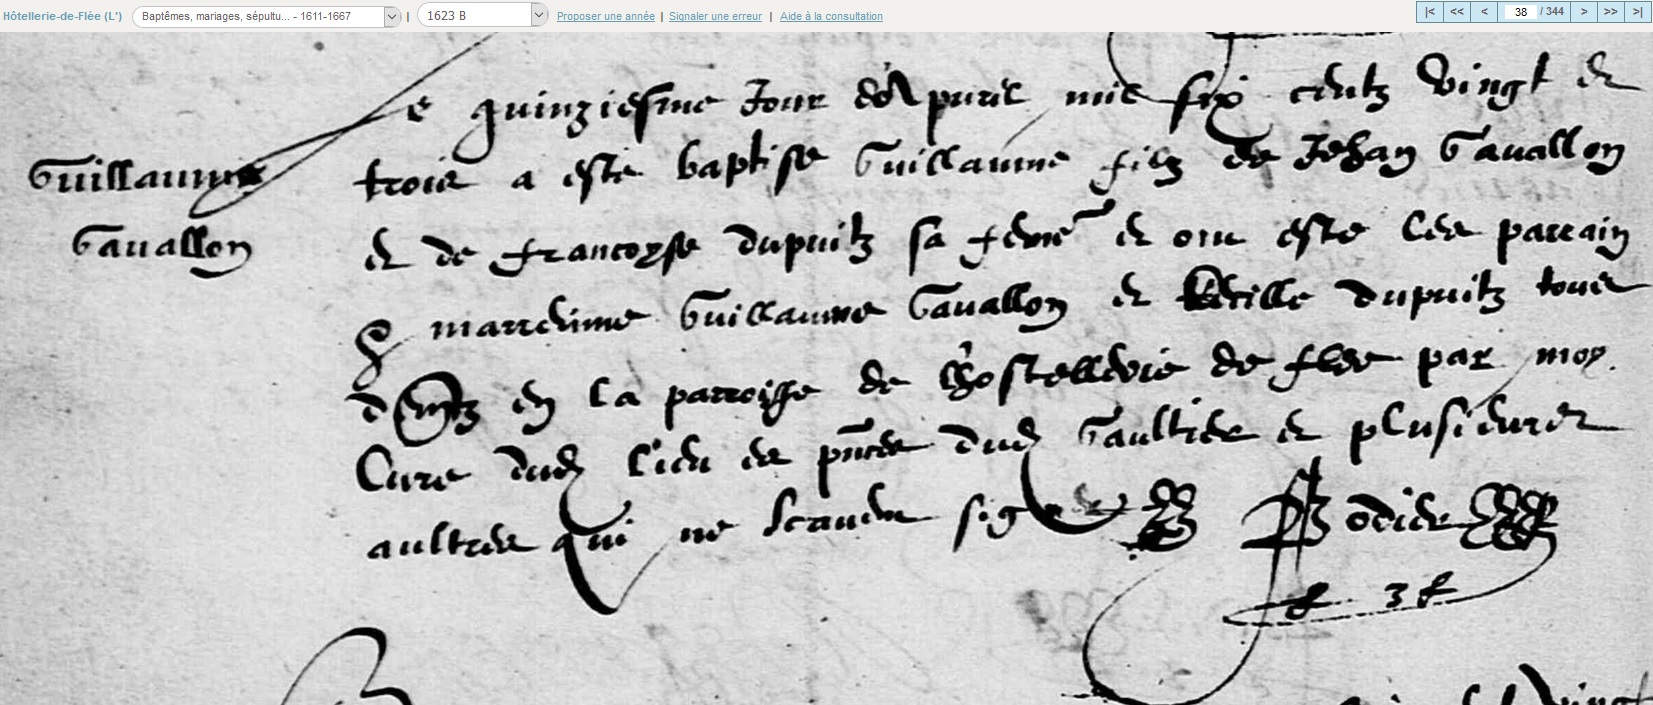 Hôtellerie-de-Flée (L') Baptêmes, mariages, sépultu... - 1611-1667 | 1623 B Proposer une année | Signaler une erreur | Aide à la consultation |< << < 38 / 344 > >> >|
Le quinziesme Jour d'Apuril mil six centz vingt et
Guillaume
trois a este baptise Guillaume filz de Jehan Gauallon
Gauallon
et de francoyse dupuitz sa feme et ont este les parrain
et marreinne Guillaume Gauallon et dupuitz tous
en la parroisse de L'hostellerie de flee par moy
Cure dud lieu es pnces dud Gaultier et plusieurs
aultres qui ne scauent signer